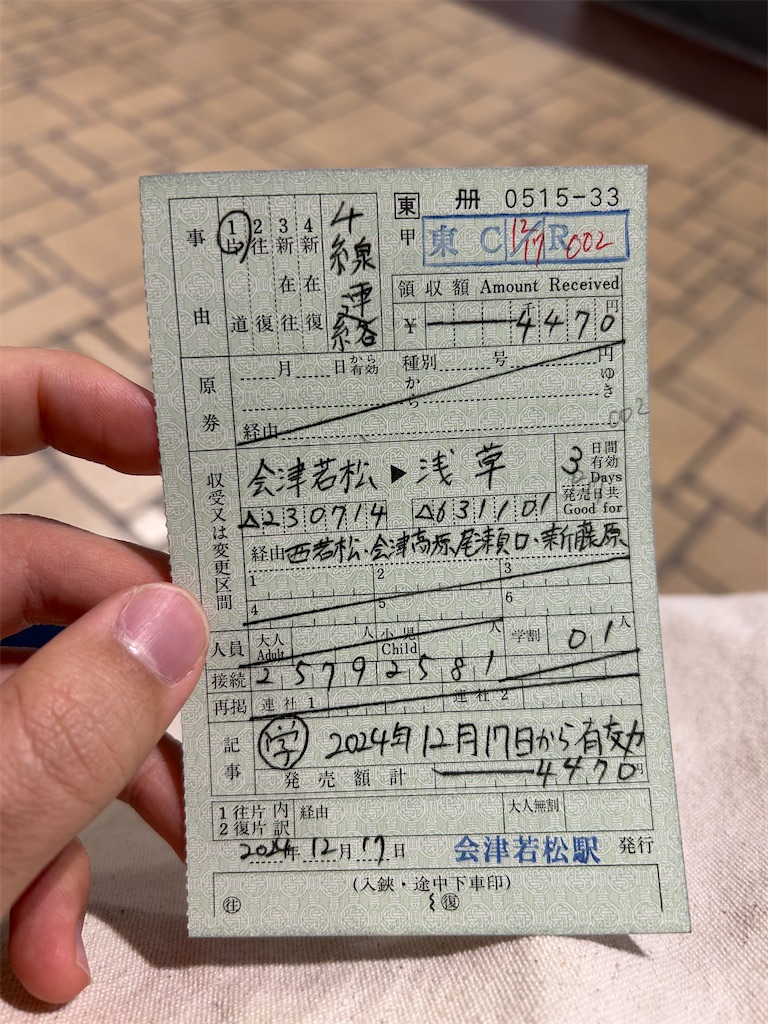 東 冊 0515-33
甲 東 C 12/17 R 002
事由
1片道 2往復 3新在往 4新在復
4線連絡
領収額 Amount Received
¥ 4470 千 円
原券
月 日から有効 種別 号
から 円ゆき
経由
002
収受又は変更区間
会津若松 ▶ 浅草
3 日間有効 Days
発売日共 Good for
△230714 △631101
経由 西若松・会津高原尾瀬口・新藤原
1 2 3
4 5 6
人員 大人 Adult 人 小児 Child 人 学割 01人
接続 2579 2581
再掲 連社1 連社2
記事
学 2024年12月17日から有効
発売額計 4470円
1往片 2復片 内訳 経由 大人無割
2024年12月17日 会津若松駅 発行
(入鋏・途中下車印)
往 復